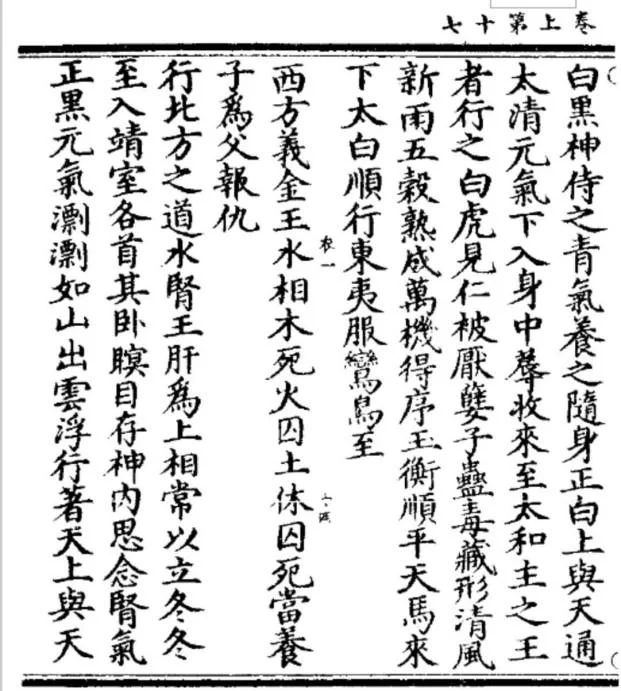 卷上第十七
白黑神侍之青氣養之隨身正白上與天通
太清元氣下入身中蓐收來至太和主之王
者行之白虎見仁被厭孽子蠱毒藏形清風
新雨五穀熟成萬機得序玉衡順平天馬來
下太白順行東夷服鸞鳥至
西方義金王水相木死火囚土休囚死當養
子爲父報仇
行北方之道水腎王肝爲上相常以立冬冬
至入靖室各首其卧瞑目存神内思念腎氣
正黑元氣如山出雲浮行著天上與天